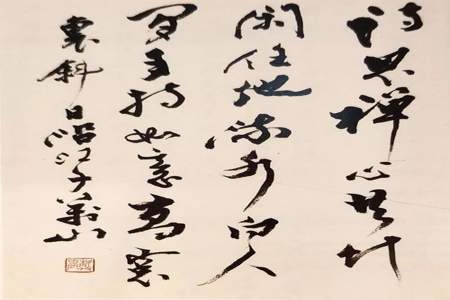 詩思禪心共竹
閑任他流水向人
間手持如意高窗
裏斜日沿江千萬山